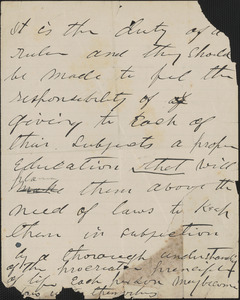 It is the duty of a
ruler and they should
be made to feel the
responsibility of
giving to each of
their subjects a proper
Education that will
place them above the
need of laws to keep
them in subjection
by a thorough understanding
of the procreative principle
of life each person may become